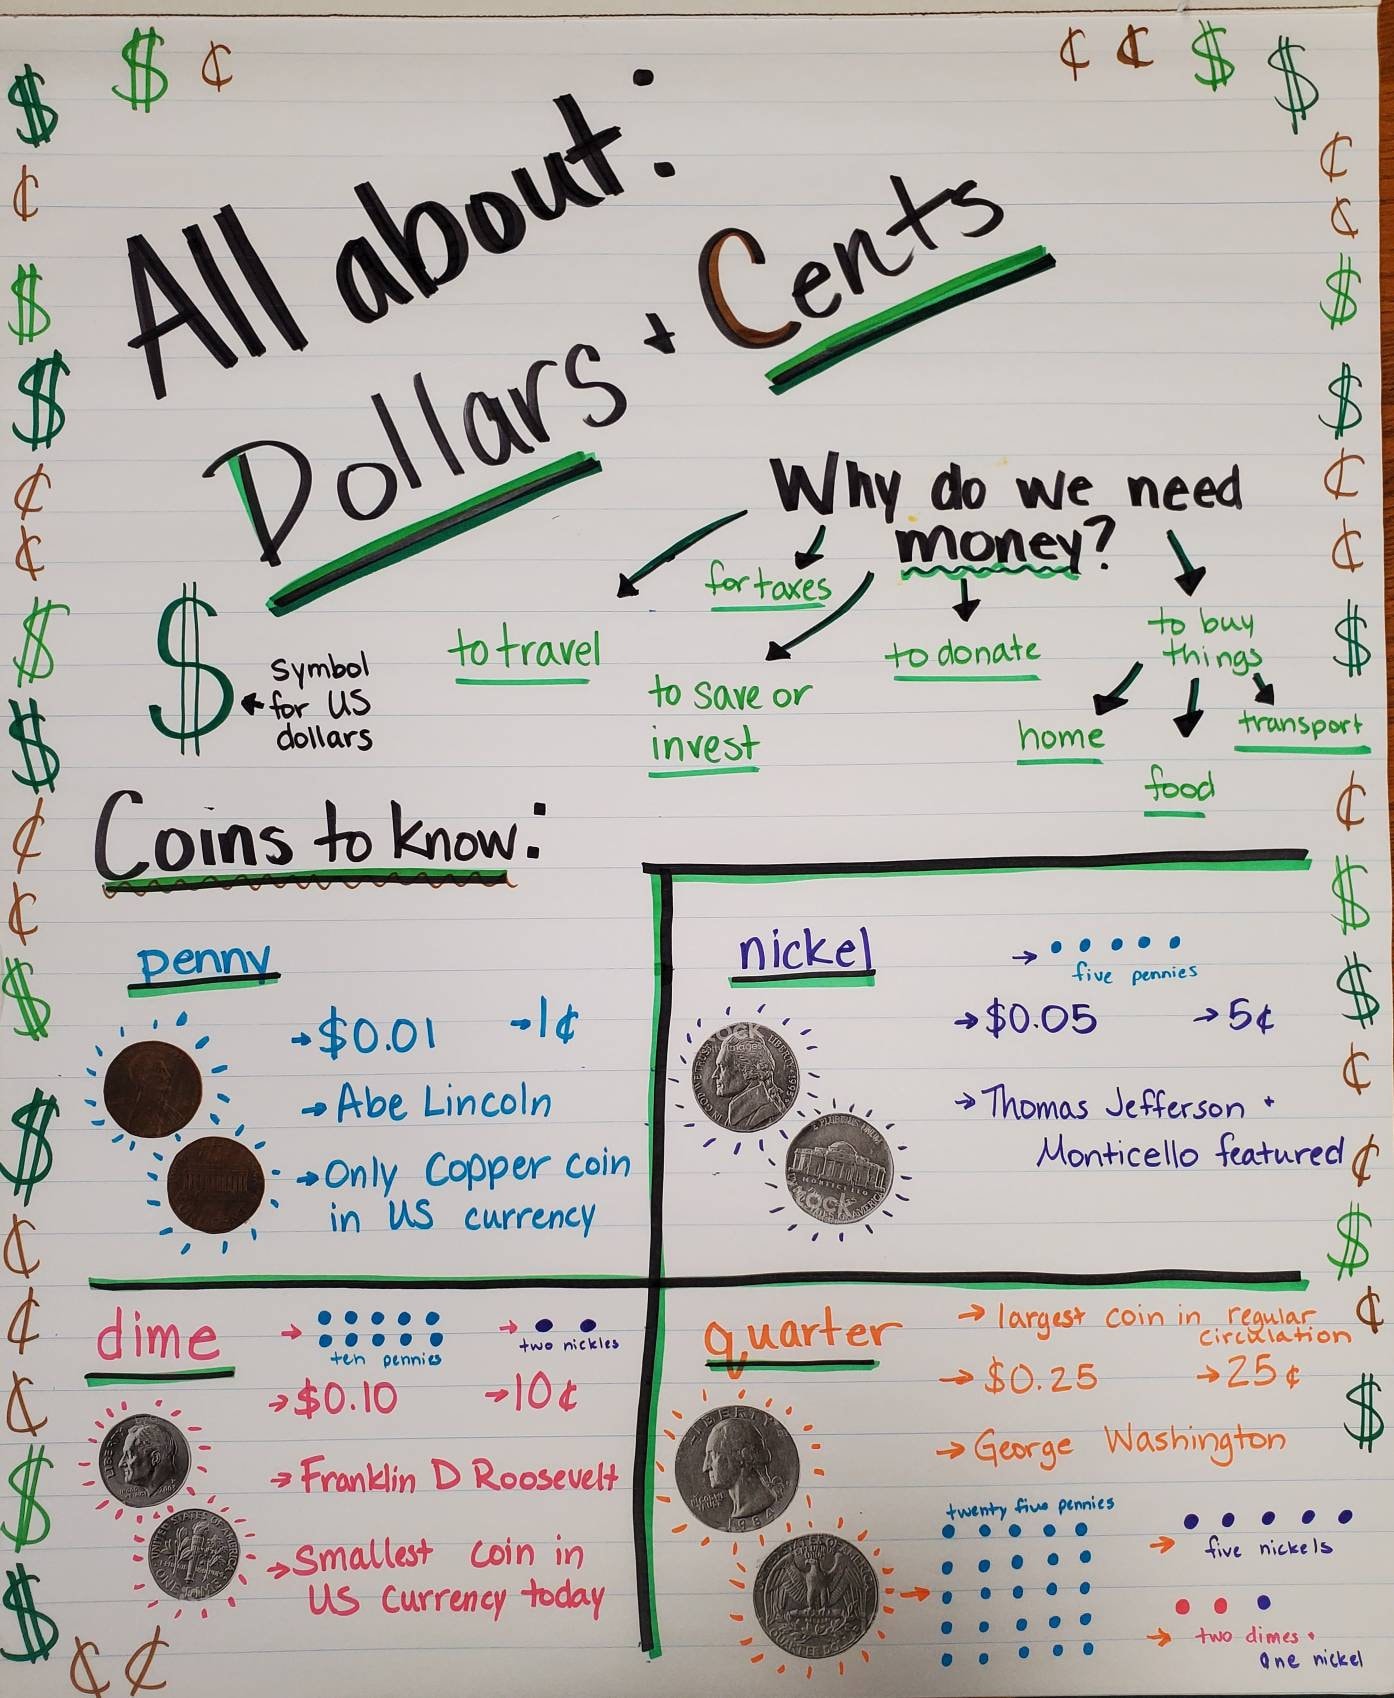 $ ¢ ¢ ¢ $ $
All about:
Dollars + Cents
Why do we need
money?
for taxes
to travel
to save or
invest
to donate
to buy
things
home
food
transport
$
symbol
for US
dollars
Coins to know:
penny
→ $0.01 → 1¢
→ Abe Lincoln
→ Only Copper coin
in US currency
nickel
→
five pennies
→ $0.05 → 5¢
→ Thomas Jefferson +
Monticello featured
LIBERTY
MONTICELLO
dime
→
ten pennies
→
two nickles
→ $0.10 → 10¢
→ Franklin D Roosevelt
→ Smallest coin in
US Currency today
LIBERTY
quarter
→ largest coin in regular
circulation
→ $0.25 → 25¢
→ George Washington
LIBERTY
1984
twenty five pennies
→
→
five nickels
→ two dimes +
one nickel